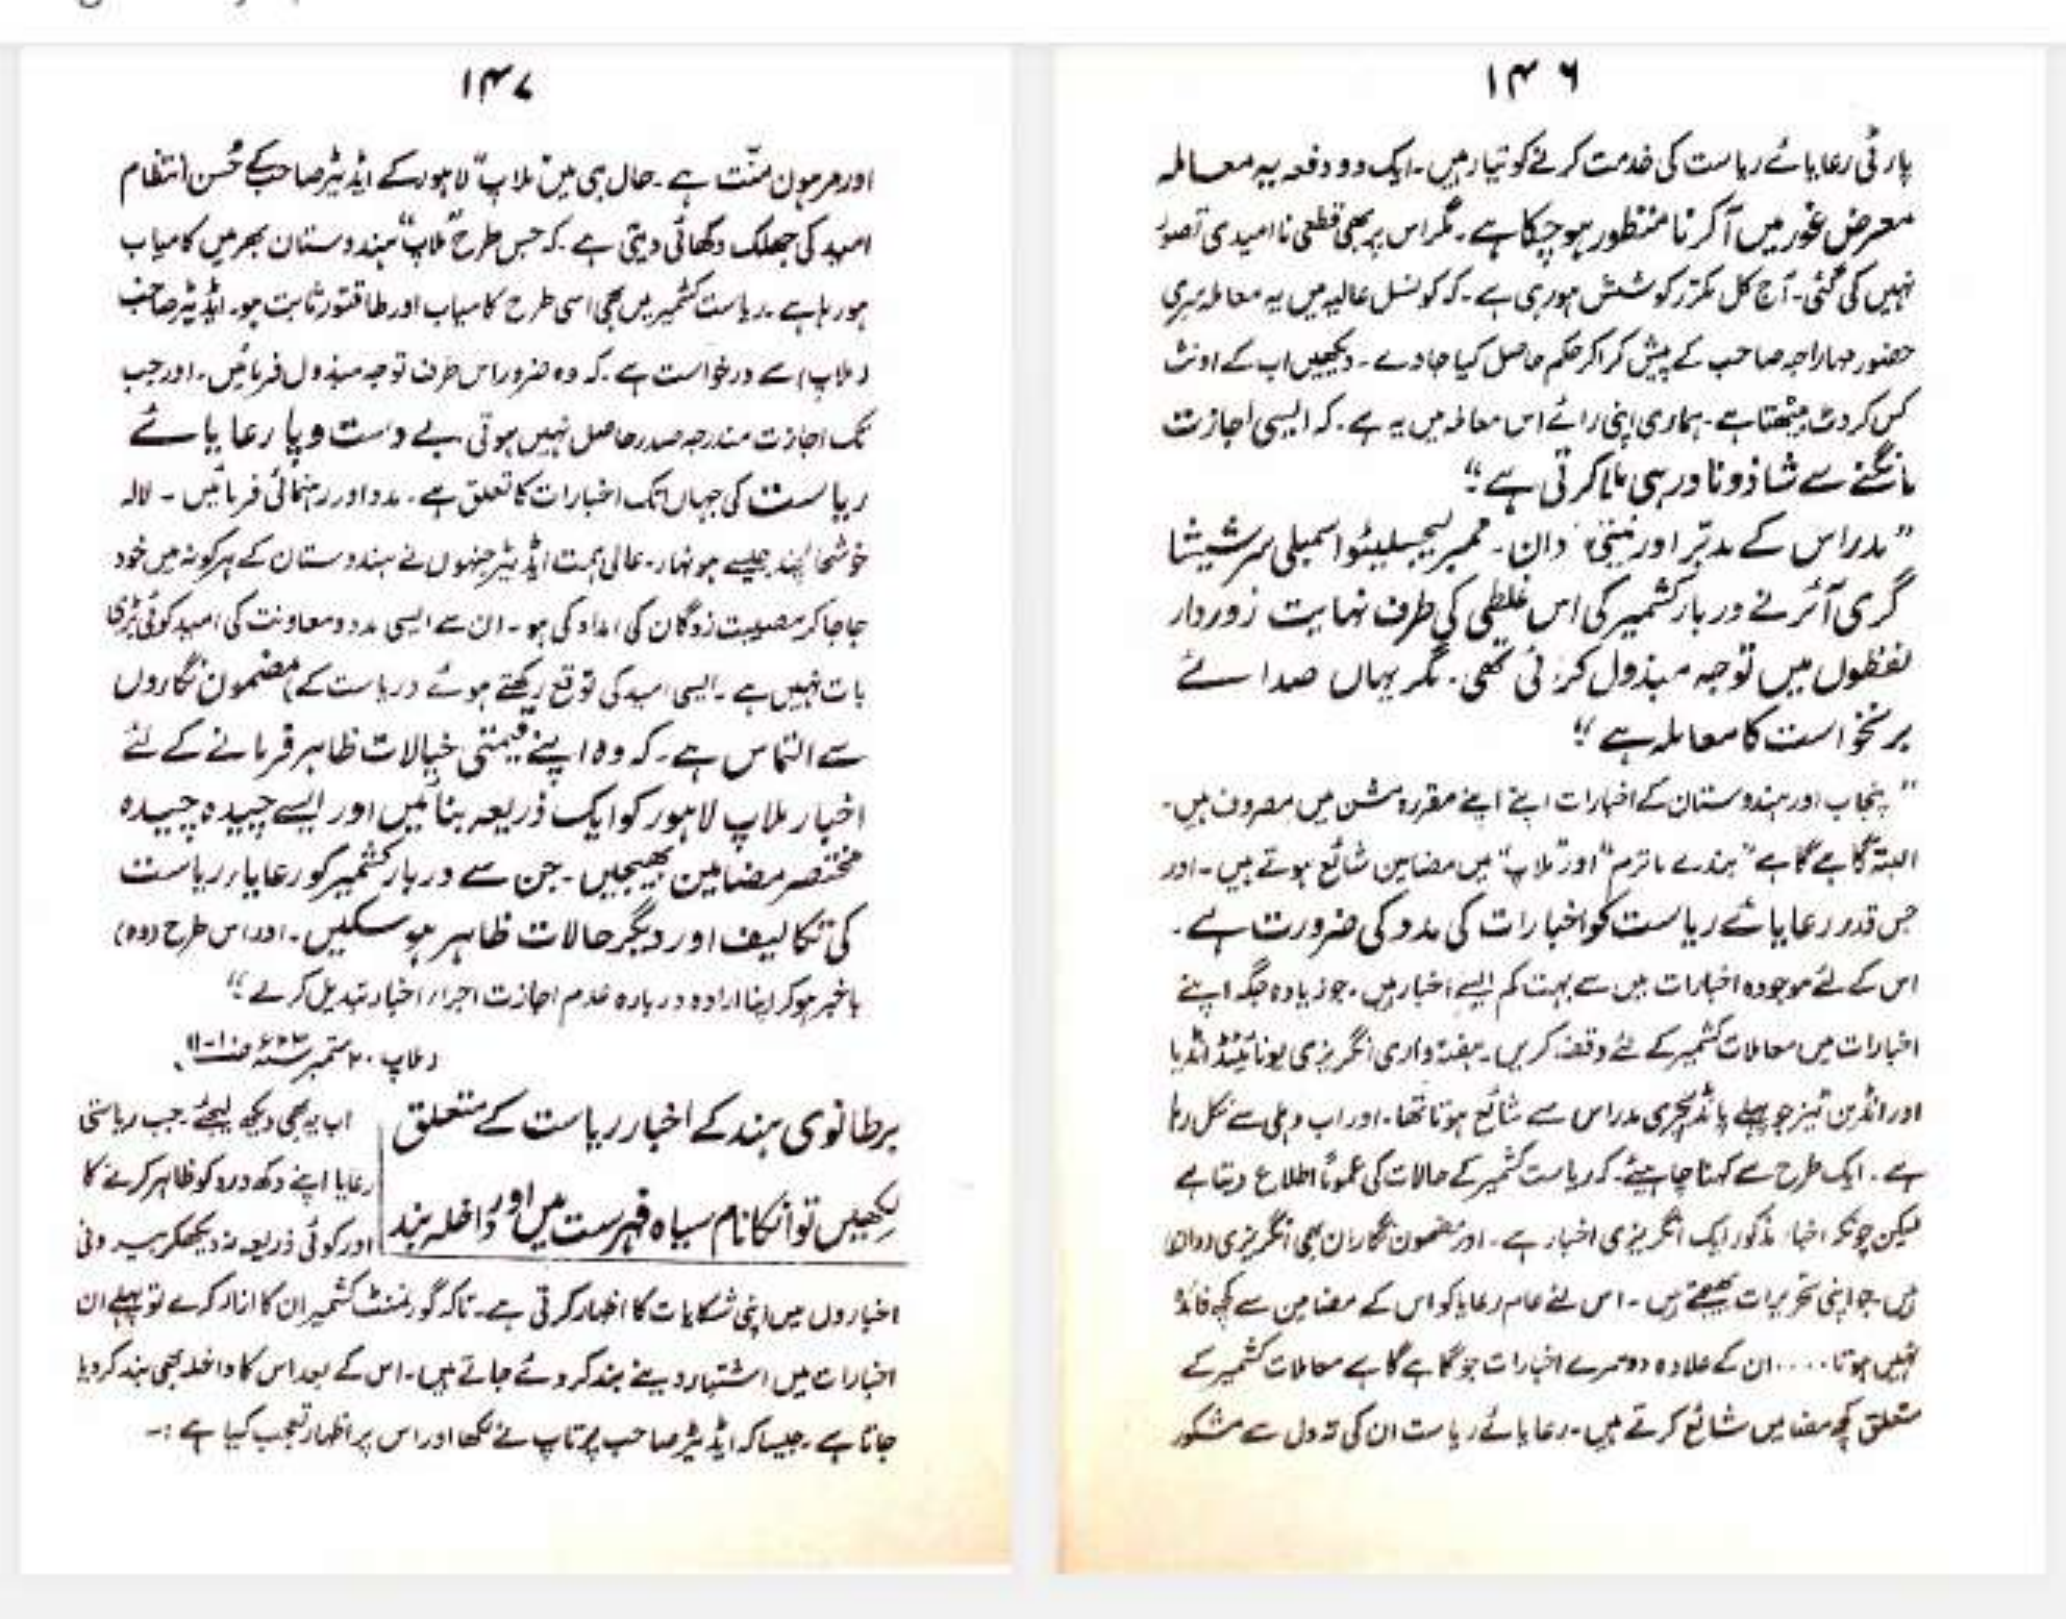 ۱۴۶
پارٹی رعایائے ریاست کی خدمت کرنے کو تیار ہیں۔ ایک دو دفعہ یہ معاملہ
معرض غور میں آکر نا منظور ہو چکا ہے۔ مگر اس پر بھی قطعی نا امیدی تصور
نہیں کی گئی۔ آج کل مکرّر کوشش ہو رہی ہے۔ کہ کونسل عالیہ میں یہ معاملہ سری
حضور مہاراجہ صاحب کے پیش کراکر حکم حاصل کیا جاوے۔ دیکھیں اب کے اونٹ
کس کروٹ بیٹھتا ہے۔ ہماری اپنی رائے اس معاملہ میں یہ ہے۔ کہ ایسی اجازت
مانگنے سے شاذ و نادر ہی ملا کرتی ہے“
”مدراس کے مدبّر اور دان۔ ممبر لیجسلیٹو اسمبلی سر شیشا
گری آئر نے دربار کشمیر کی اس غلطی کی طرف نہایت زوردار
لفظوں میں توجہ مبذول کرائی تھی۔ مگر یہاں صدائے
برنخواست کا معاملہ ہے“
”پنجاب اور ہندوستان کے اخبارات اپنے اپنے مقررہ مشن میں مصروف ہیں۔
البتہ گاہے گاہے ”بندے ماترم“ اور ”ملاپ“ میں مضامین شائع ہوتے ہیں۔ اور
جس قدر رعایائے ریاست کو اخبارات کی مدد کی ضرورت ہے۔
اس کے لئے موجودہ اخبارات میں سے بہت کم ایسے اخبار ہیں۔ جو زیادہ جگہ اپنے
اخبارات میں معاملات کشمیر کے لئے وقف کریں۔ ہفتہ واری انگریزی یونائیٹڈ انڈیا
اور انڈین جو پہلے پانڈیچری مدراس سے شائع ہوتا تھا۔ اور اب دہلی سے نکل رہا
ہے۔ ایک طرح سے کہنا چاہیئے۔ کہ ریاست کشمیر کے حالات کی عموماً اطلاع دیتا ہے
لیکن چونکہ اخبار مذکور ایک انگریزی اخبار ہے۔ اور مضمون نگاران بھی انگریزی دوان
ہیں۔ جو اپنی تحریرات بھیجتے ہیں۔ اس لئے عام رعایا کو اس کے مضامین سے کچھ فائدہ
نہیں ہوتا.....ان کے علاوہ دوسرے اخبارات جو گاہے گاہے معاملات کشمیر کے
متعلق کچھ مضامین شائع کرتے ہیں۔ رعایائے ریاست ان کی تہ دل سے مشکور
۱۴۷
اور مرہون منّت ہے۔ حال ہی میں ”ملاپ“ لاہور کے ایڈیٹر صاحب کے حُسن انتظام
امید کی جھلک دکھائی دیتی ہے۔ کہ جس طرح ”ملاپ“ ہندوستان بھر میں کامیاب
ہو رہا ہے۔ ریاست کشمیر میں بھی اسی طرح کامیاب اور طاقتور ثابت ہو۔ ایڈیٹر صاحب
(ملاپ) سے درخواست ہے۔ کہ وہ ضرور اس طرف توجہ مبذول فرمائیں۔ اور جب
تک اجازت مندرجہ صدر حاصل نہیں ہوتی بے دست و پا رعایائے
ریاست کی جہاں تک اخبارات کا تعلق ہے۔ مدد اور رہنمائی فرمائیں۔ لالہ
خوشحال چند جیسے ہونہار۔ عالی ہمت ایڈیٹر جنہوں نے ہندوستان کے ہر کونہ میں خود
جا جا کر مصیبت زدگان کی امداد کی ہو۔ ان سے ایسی مدد و معاونت کی امید کوئی بڑی
بات نہیں ہے۔ ایسی امید کی توقع رکھتے ہوئے (ریاست کے) مضمون نگاروں
سے التماس ہے۔ کہ وہ اپنے قیمتی خیالات ظاہر فرمانے کے لئے
اخبار ملاپ لاہور کو ایک ذریعہ بنائیں اور ایسے چیدہ چیدہ
مختصر مضامین بھیجیں۔ جن سے دربار کشمیر کو رعایاء ریاست
کی تکالیف اور دیگر حالات ظاہر ہو سکیں۔ اور اس طرح (وہ)
باخبر ہو کر اپنا ارادہ دربارہ عدم اجازت اجراء اخبار تبدیل کرے“
(ملاپ ۲۰ ستمبر
برطانوی ہند کے اخبار ریاست کے متعلق
لکھیں تو انکا نام سیاہ فہرست میں اور داخلہ بند
اب یہ بھی دیکھ لیجئے۔ جب ریاستی
رعایا اپنے دکھ درد کو ظاہر کرنے کا
اور کوئی ذریعہ نہ دیکھکر بیرونی
اخباروں میں اپنی شکایات کا اظہار کرتی ہے۔ تاکہ گورنمنٹ کشمیر ان کا ازالہ کرے تو پہلے ان
اخبارات میں اشتہار دینے بند کر دئے جاتے ہیں۔ اس کے بعد اس کا داخلہ بھی بند کر دیا
جاتا ہے۔ جیسا کہ ایڈیٹر صاحب پرتاپ نے لکھا اور اس پر اظہار تعجب کیا ہے :۔